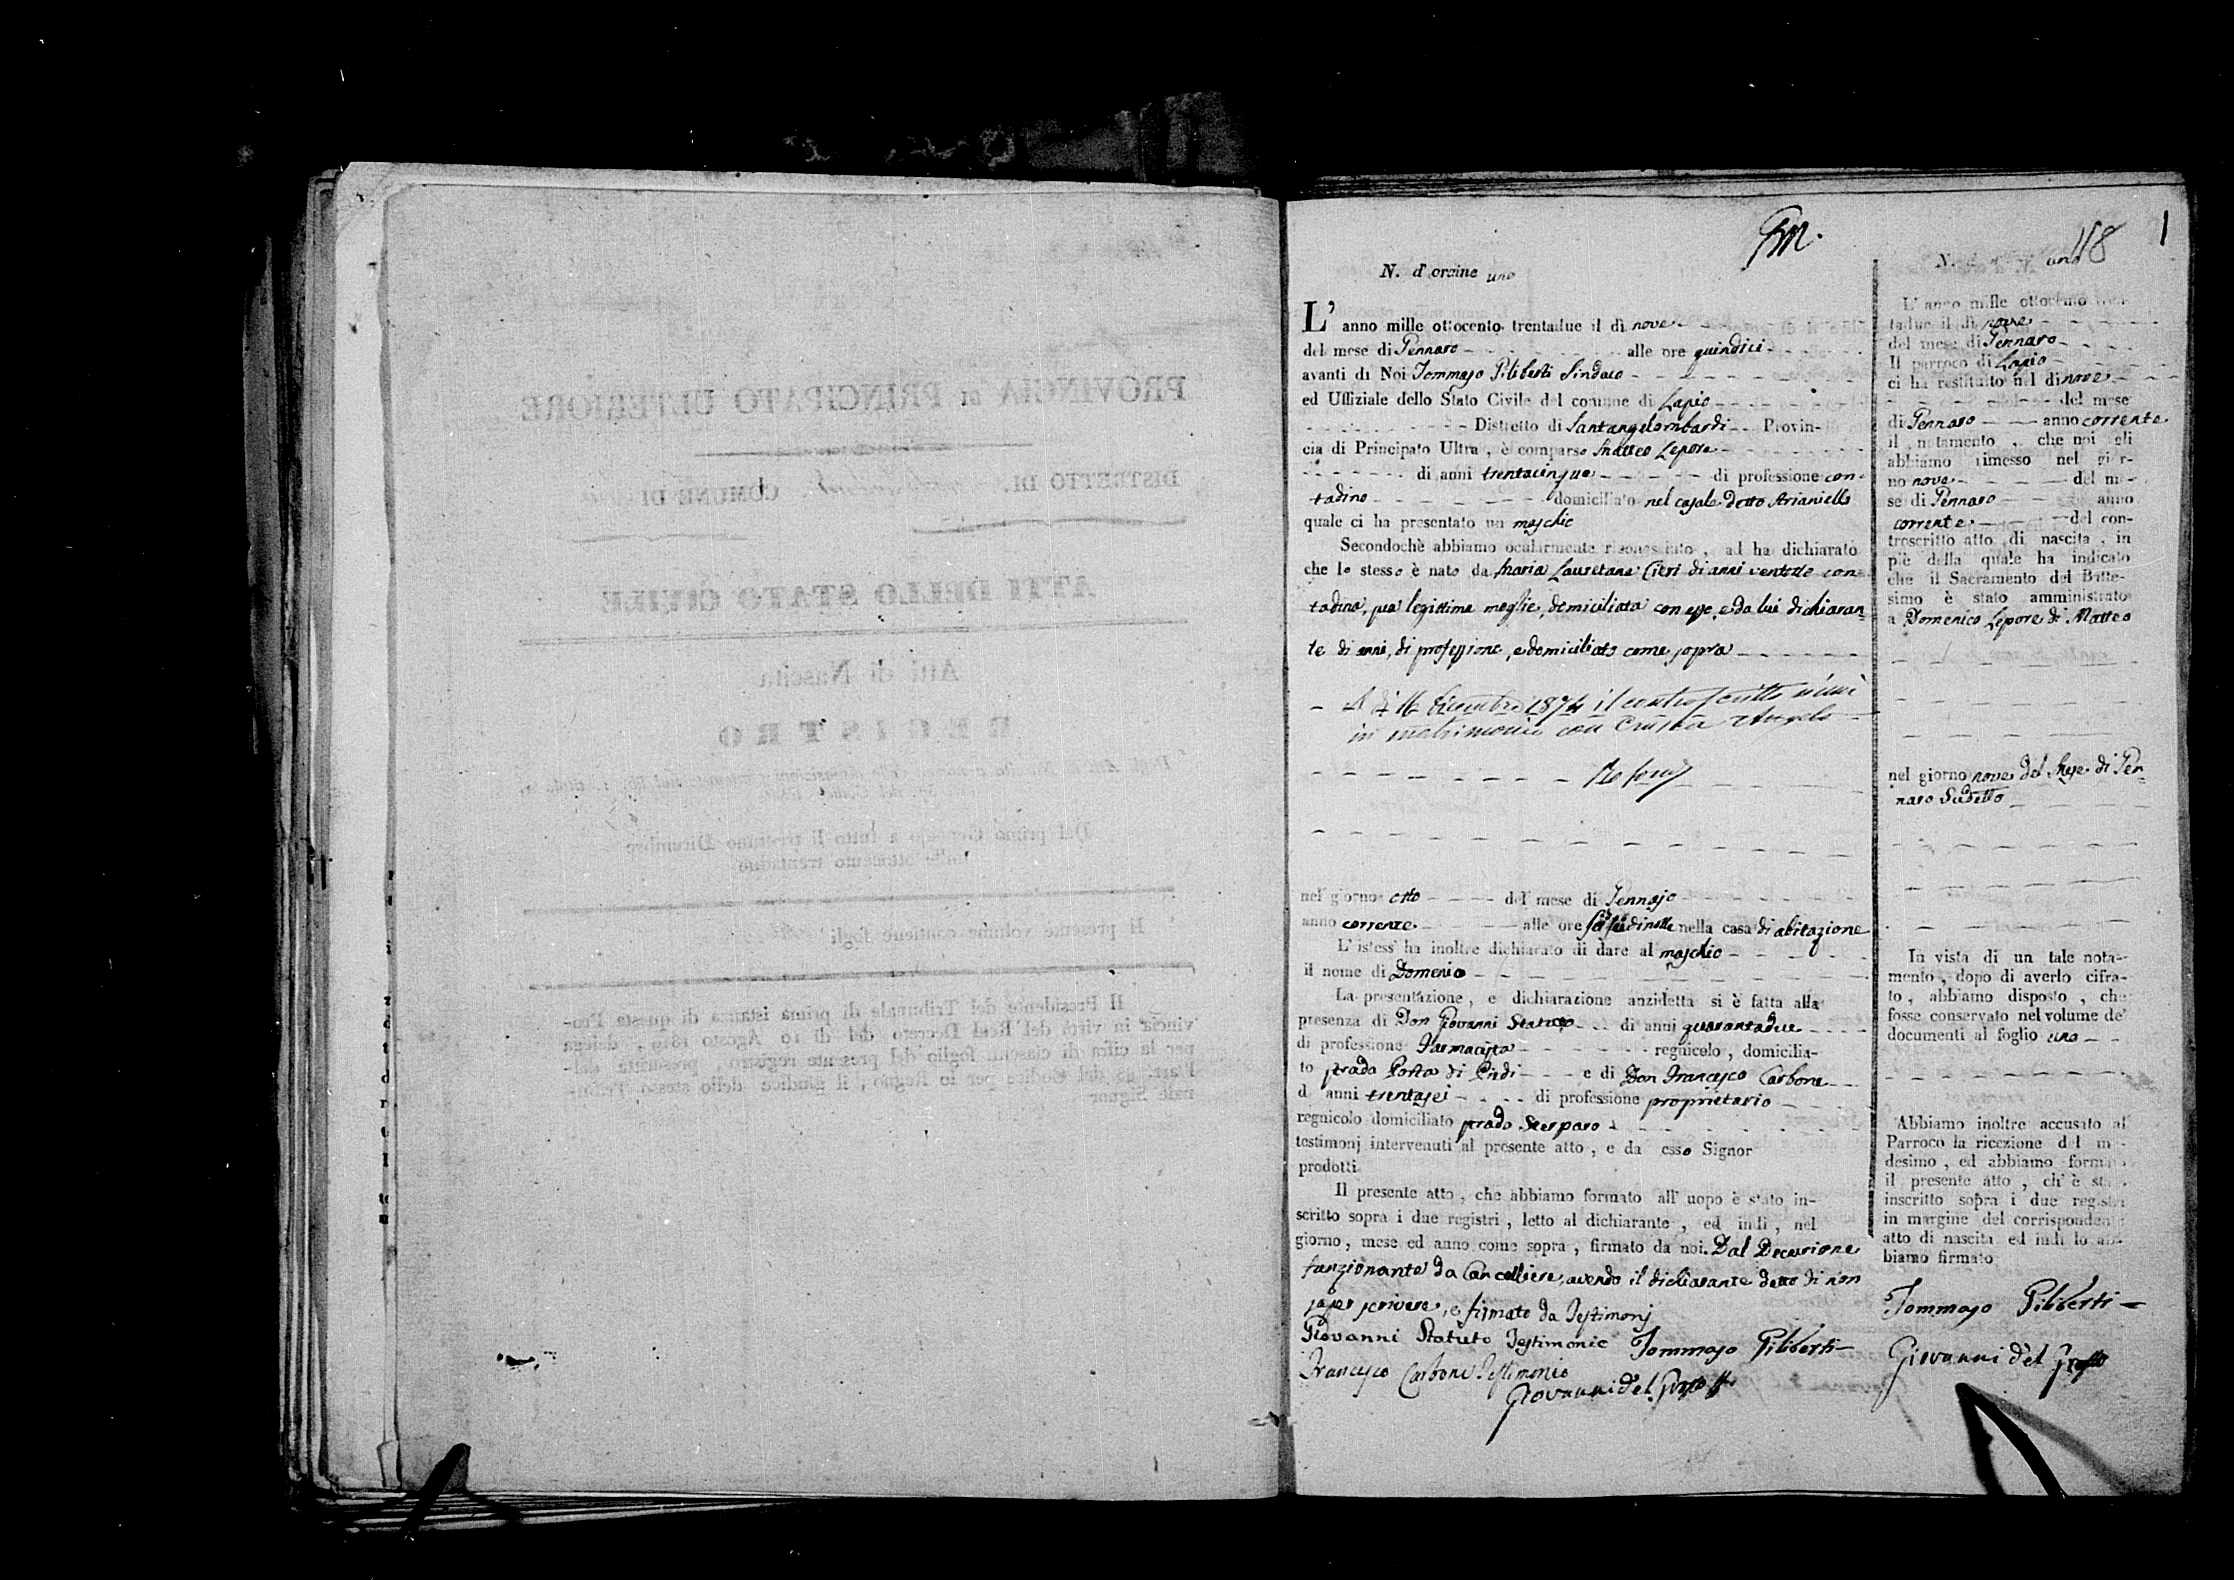 N. d'ordine uno
L' anno mille ottocento trentadue il dì nove
del mese di Gennaro alle ore quindici
avanti di Noi Tommaso Piliberti Sindaco
ed Uffiziale dello Stato Civile del comune di Lapio
Distretto di Santangelombardi Provin-
cia di Principato Ultra, è comparso Matteo Lepore
di anni trentacinque di professione con-
tadino domiciliato nel casale detto Arianiello
quale ci ha presentato un maschio
Secondochè abbiamo ocularmente riconosciuto, ad ha dichiarato
che lo stesso è nato da Maria Lauretana Cieri di anni ventotto con-
tadina, sua legittima moglie, domiciliata con esso, e da lui dichiaran-
te di anni, di professione, e domiciliato come sopra
A dì 16 Dicembre 1874 il controscritto s'unì
in matrimonio con Angela
nel giorno otto del mese di Gennajo
anno corrente alle ore nella casa di abitazione
L'istess' ha inoltre dichiarato di dare al maschio
il nome di Domenico
La presentazione, e dichiarazione anzidetta si è fatta alla
presenza di Don Giovanni Statuto di anni quarantadue
di professione Farmacista regnicolo, domicilia-
to strada Porta di Piedi e di Don Francesco Carbone
d anni trentasei di professione proprietario
regnicolo domiciliato strada
testimonj intervenuti al presente atto, e da esso Signor
prodotti
Il presente atto, che abbiamo formato all' uopo è stato in-
scritto sopra i due registri, letto al dichiarante, ed indi, nel
giorno, mese ed anno come sopra, firmato da noi. Dal Decurione
funzionante da Cancelliere, avendo il dichiarante detto di non
saper scrivere, e firmato da Testimonj
Giovanni Statuto Testimonio Tommaso Piliberti
Francesco Carbone Testimonio
Giovanni del Grosso
118
1
N. uno
L' anno mille ottocento tren-
tadue il dì nove
del mese di Gennaro
Il parroco di Lapio
ci ha restituito nel dì nove
del mese
di Gennaro anno corrente
il notamento, che noi gli
abbiamo rimesso nel gior-
no nove del me-
se di Gennaro anno
corrente del con-
troscritto atto di nascita, in
piè della quale ha indicato
che il Sacramento del Batte-
simo è stato amministrato
a Domenico Lepore di Matteo
nel giorno nove del Mese di Gen-
naro Sudetto
In vista di un tale nota-
mento, dopo di averlo cifra-
to, abbiamo disposto, che
fosse conservato nel volume de'
documenti al foglio uno
Abbiamo inoltre accusato al
Parroco la ricezione del me-
desimo, ed abbiamo formato
il presente atto, ch' è stato
inscritto sopra i due registri
in margine del corrispondente
atto di nascita ed indi lo ab-
biamo firmato
Tommaso Piliberti
Giovanni del Grosso
PROVINCIA DI PRINCIPATO ULTERIORE
DISTRETTO DI COMUNE DI
ATTI DELLO STATO CIVILE
Atti di Nascita
REGISTRO
Dal primo Gennajo a tutto li trentuno Dicembre
mille ottocento trentadue
Il presente volume contiene fogli
Il Presidente del Tribunale di prima istanza di questa Pro-
vincia in virtù del Real Decreto del dì 10 Agosto 1819, delega
per la cifra di ciascun foglio del presente registro, prescritta dal-
l'art. 43 del Codice per lo Regno, il giudice dello stesso Tribu-
nale Signor